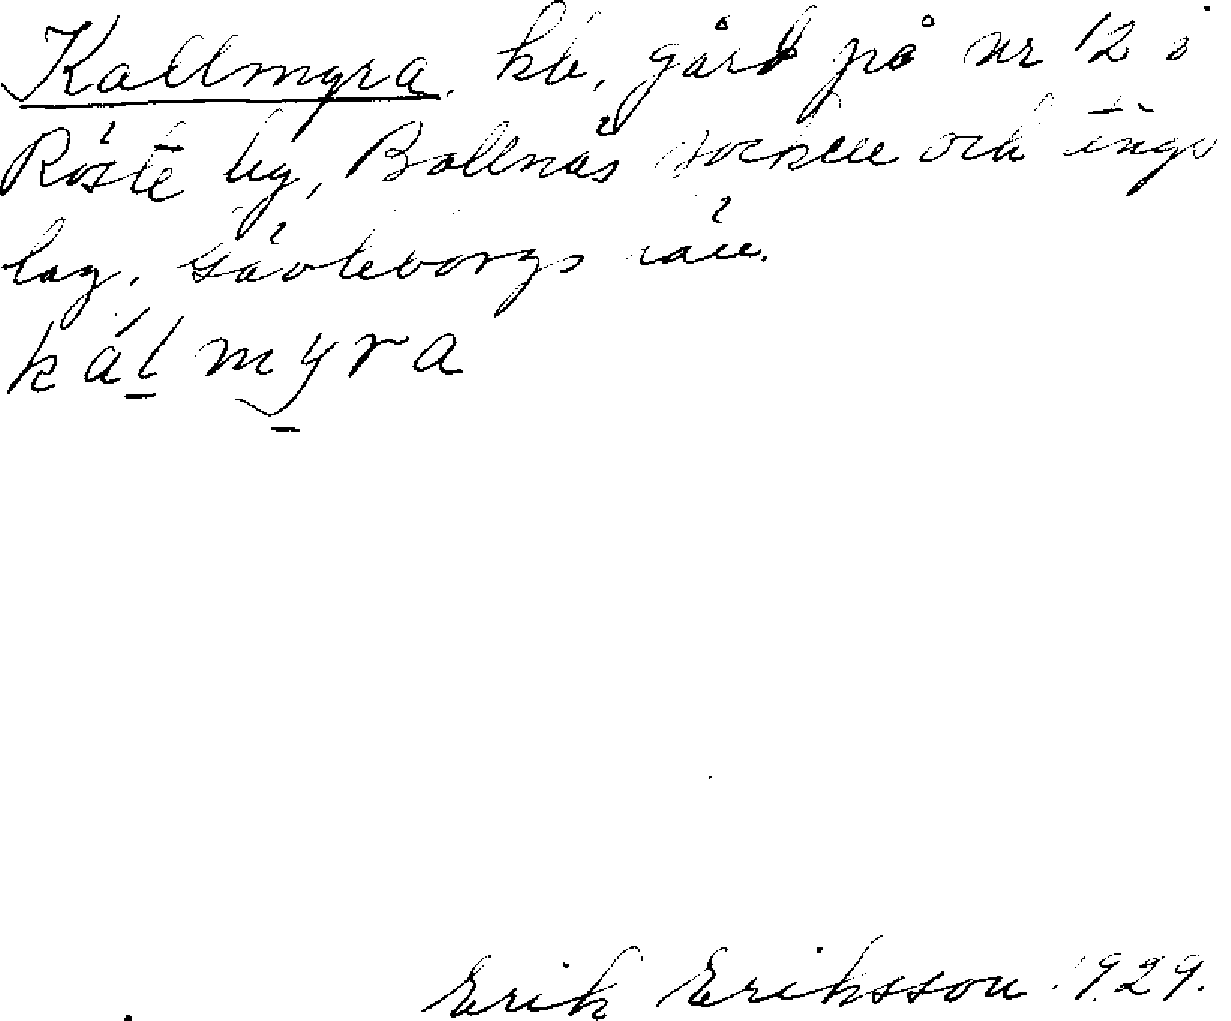 Kallmyra. hb. gård på nr 12 i
Röste by, Bollnäs socken och tings
lag. Gävleborgs län.
kálmyra
Erik Eriksson 1929.